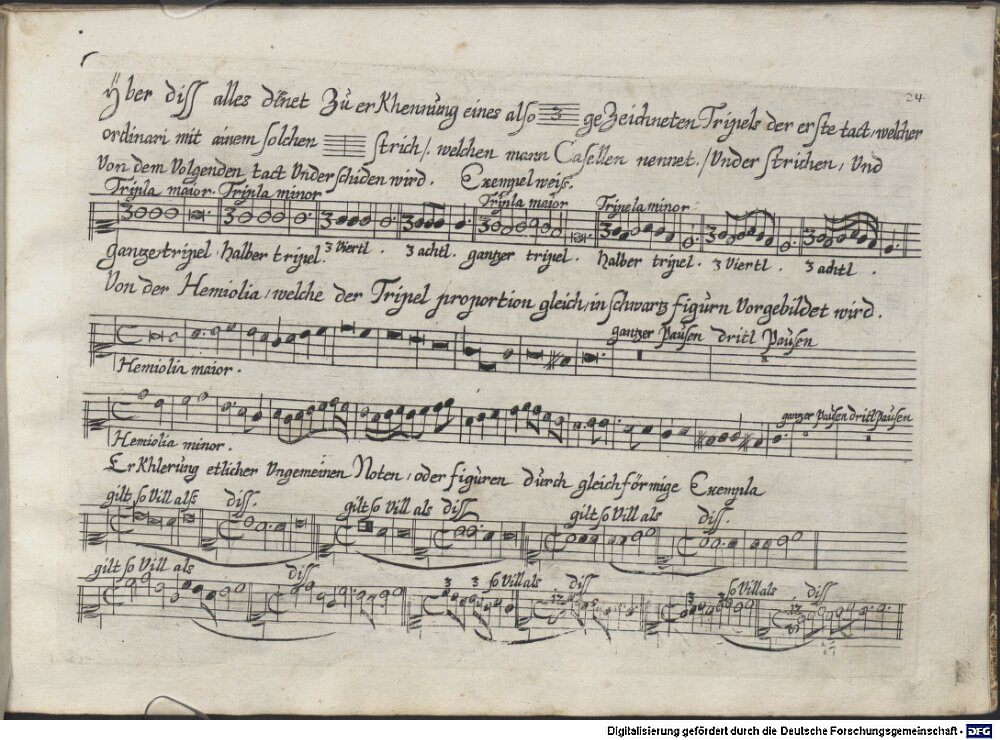 24
Yber diss alles dienet Zu erKhennung eines also 3 geZeichneten Tripels der erste tact, welcher
ordinari mit ainem solchen strich /. welchen mann Casellen nennet. / Vnder strichen, Vnd
Von dem Volgenden tact Vnder schiden wird. Exempel weiß.
Tripla maior. Tripla minor Tripla maior Tripela minor
ganzer tripel. halber tripel. 3 Viertl. 3 achtl. ganzer tripel. halber tripel. 3 Viertl. 3 achtl.
Von der Hemiolia, welche der Tripel proportion gleich, in schwartz figurn Vorgebildet wird.
gantzer Pausen dritl Pausen
Hemiolia maior.
gantzer Pausen dritl Pausen
Hemiolia minor.
ErKhlerung etlicher Vngemeinen Noten, oder figuren durch gleichförmige Exempla
gilt so Vill alß diss. gilt so Vill als diss gilt so Vill als diss.
gilt so Vill als diss 3 3 so Vill als diss 3 3 so Vill als diss
Digitalisierung gefördert durch die Deutsche Forschungsgemeinschaft - DFG